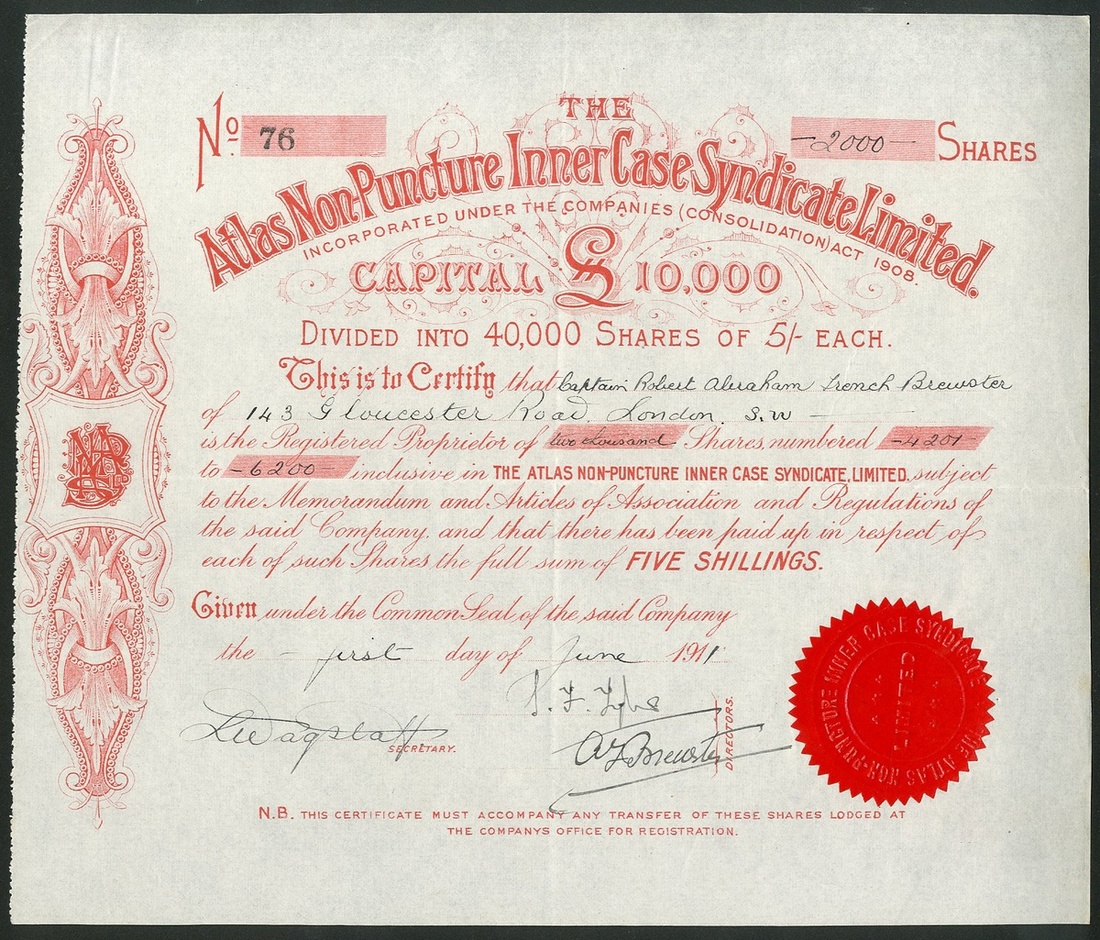 THE
No. 76
-2000- SHARES
Atlas Non-Puncture Inner Case Syndicate Limited.
INCORPORATED UNDER THE COMPANIES (CONSOLIDATION) ACT 1908.
CAPITAL £10,000
DIVIDED INTO 40,000 SHARES OF 5/- EACH.
This is to Certify that Captain Robert Abraham French Brewster
of 143 Gloucester Road, London S.W
is the Registered Proprietor of two thousand Shares, numbered -4201-
to -6200- inclusive in THE ATLAS NON-PUNCTURE INNER CASE SYNDICATE, LIMITED. subject
to the Memorandum and Articles of Association and Regulations of
the said Company, and that there has been paid up in respect of
each of such Shares the full sum of FIVE SHILLINGS.
Given under the Common Seal of the said Company
the - first day of June 1911
LWagstaff
SECRETARY.
Brewster
DIRECTORS.
THE ATLAS NON-PUNCTURE INNER CASE SYNDICATE
LIMITED
N.B. THIS CERTIFICATE MUST ACCOMPANY ANY TRANSFER OF THESE SHARES LODGED AT
THE COMPANYS OFFICE FOR REGISTRATION.